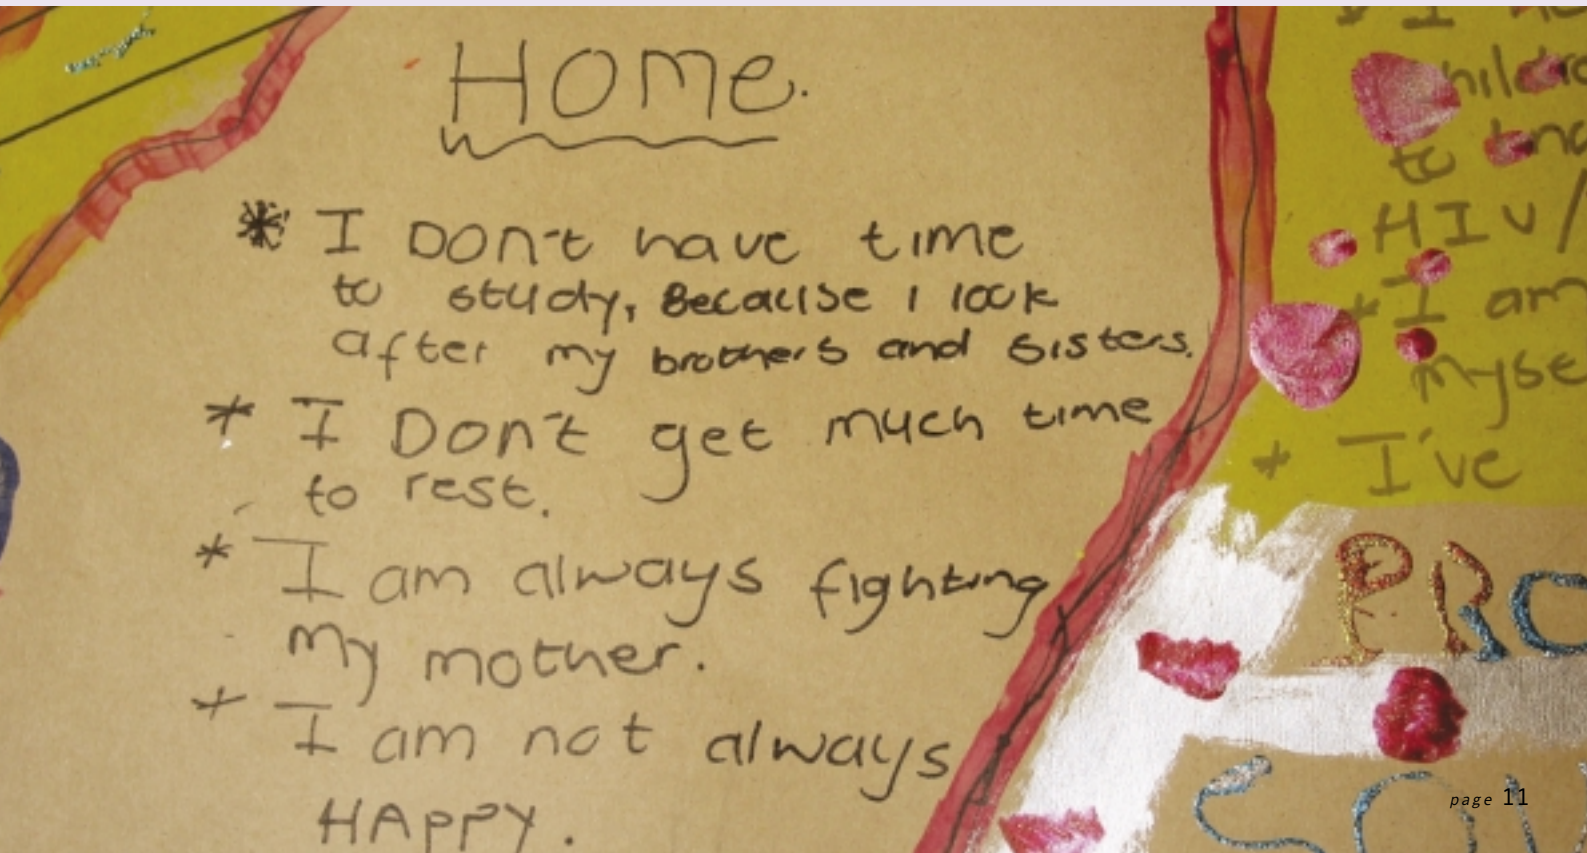 Home.
* I DON't have time
to study, Because I look
after my brothers and sisters.
* I Don't get much time
to rest.
* I am always fighting
my mother.
* I am not always
HAPPY.
to
HIV/
* I am
* I've
page 11